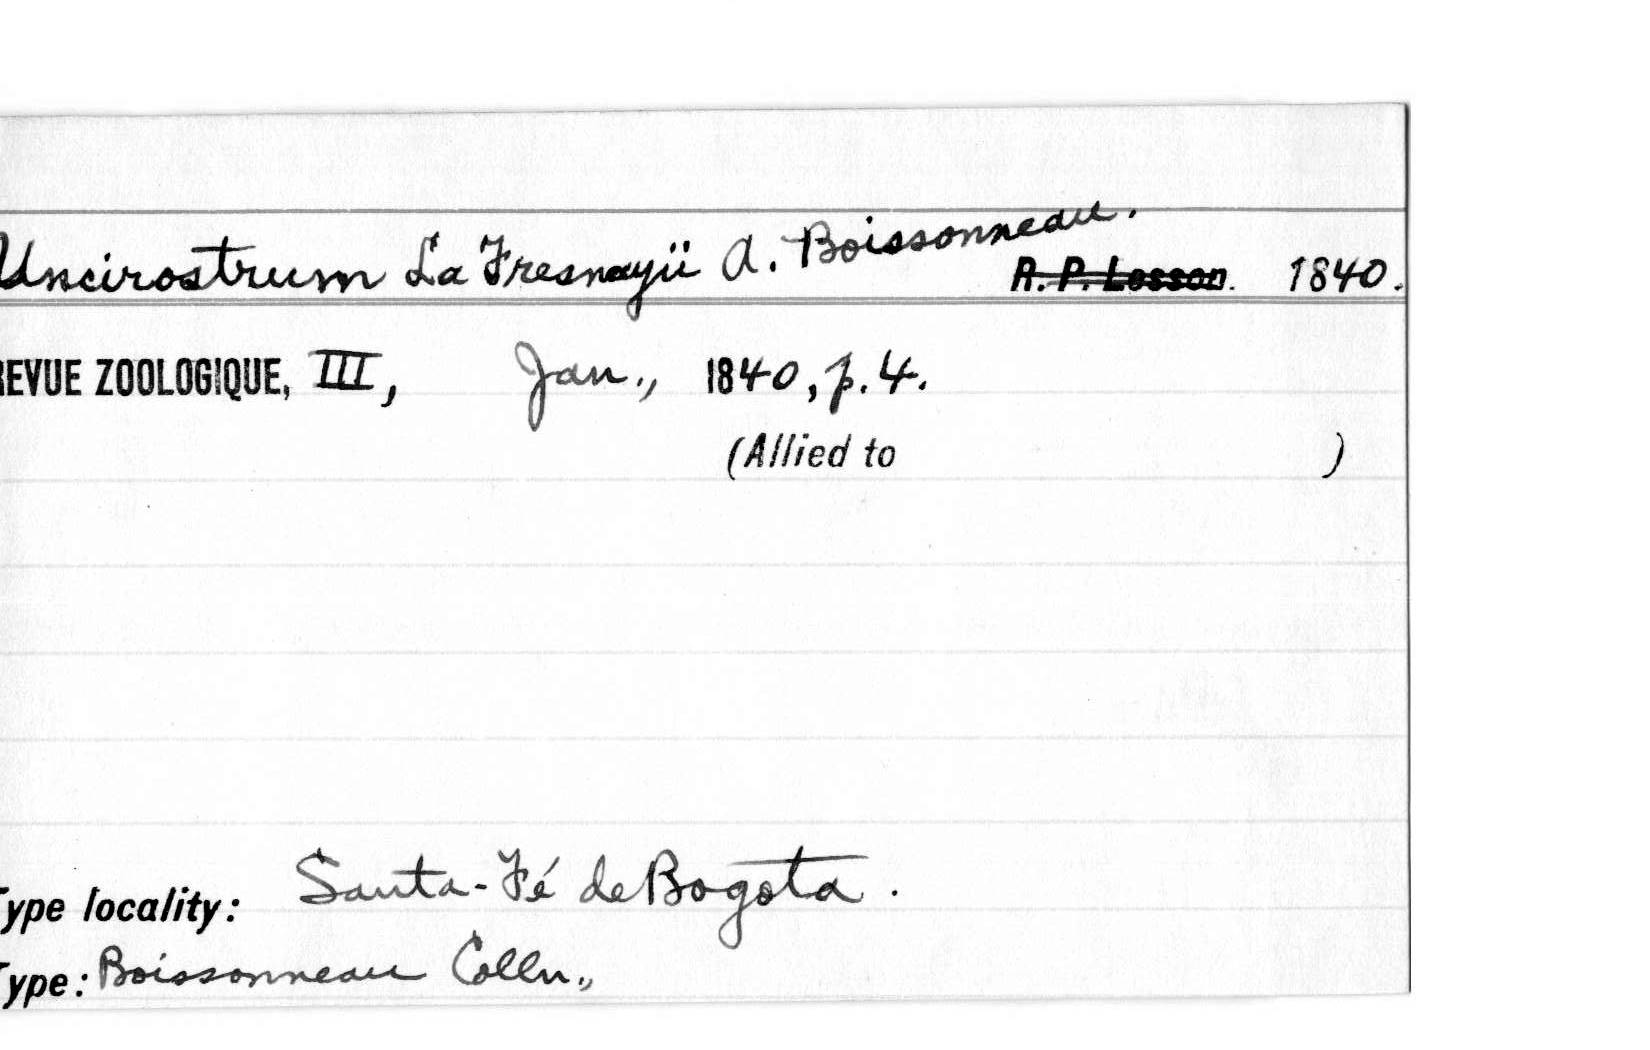 Uncirostrum La Fresnayii A. Boissonneau.
R. P. Lesson. 1840.
REVUE ZOOLOGIQUE, III, Jan., 1840, p. 4.
(Allied to )
Type locality: Santa-Fé de Bogota.
Type: Boissonneau Colln.,